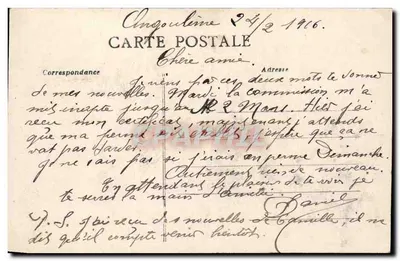 Angoulême 24/2 1916.
CARTE POSTALE
Chère amie.
Correspondance
Adresse
Je viens par ces deux mots te donné
de mes nouvelles. Mardi la commission m'a
mis inapte jusqu'au 2 Mars. Hier j'ai
reçu mon certificat, maintenant j'attends
que ma perm j'espère que ça ne
vat pas tarder.
je ne sais pas si j'irais en perme Dimanche.
Autrement rien de nouveau.
En attendant le plaisir de te voir je
te serre la main d'
Daniel
P.S. J'ai reçu des nouvelles de Camille, il me
dis qu'il compte venir bientôt.